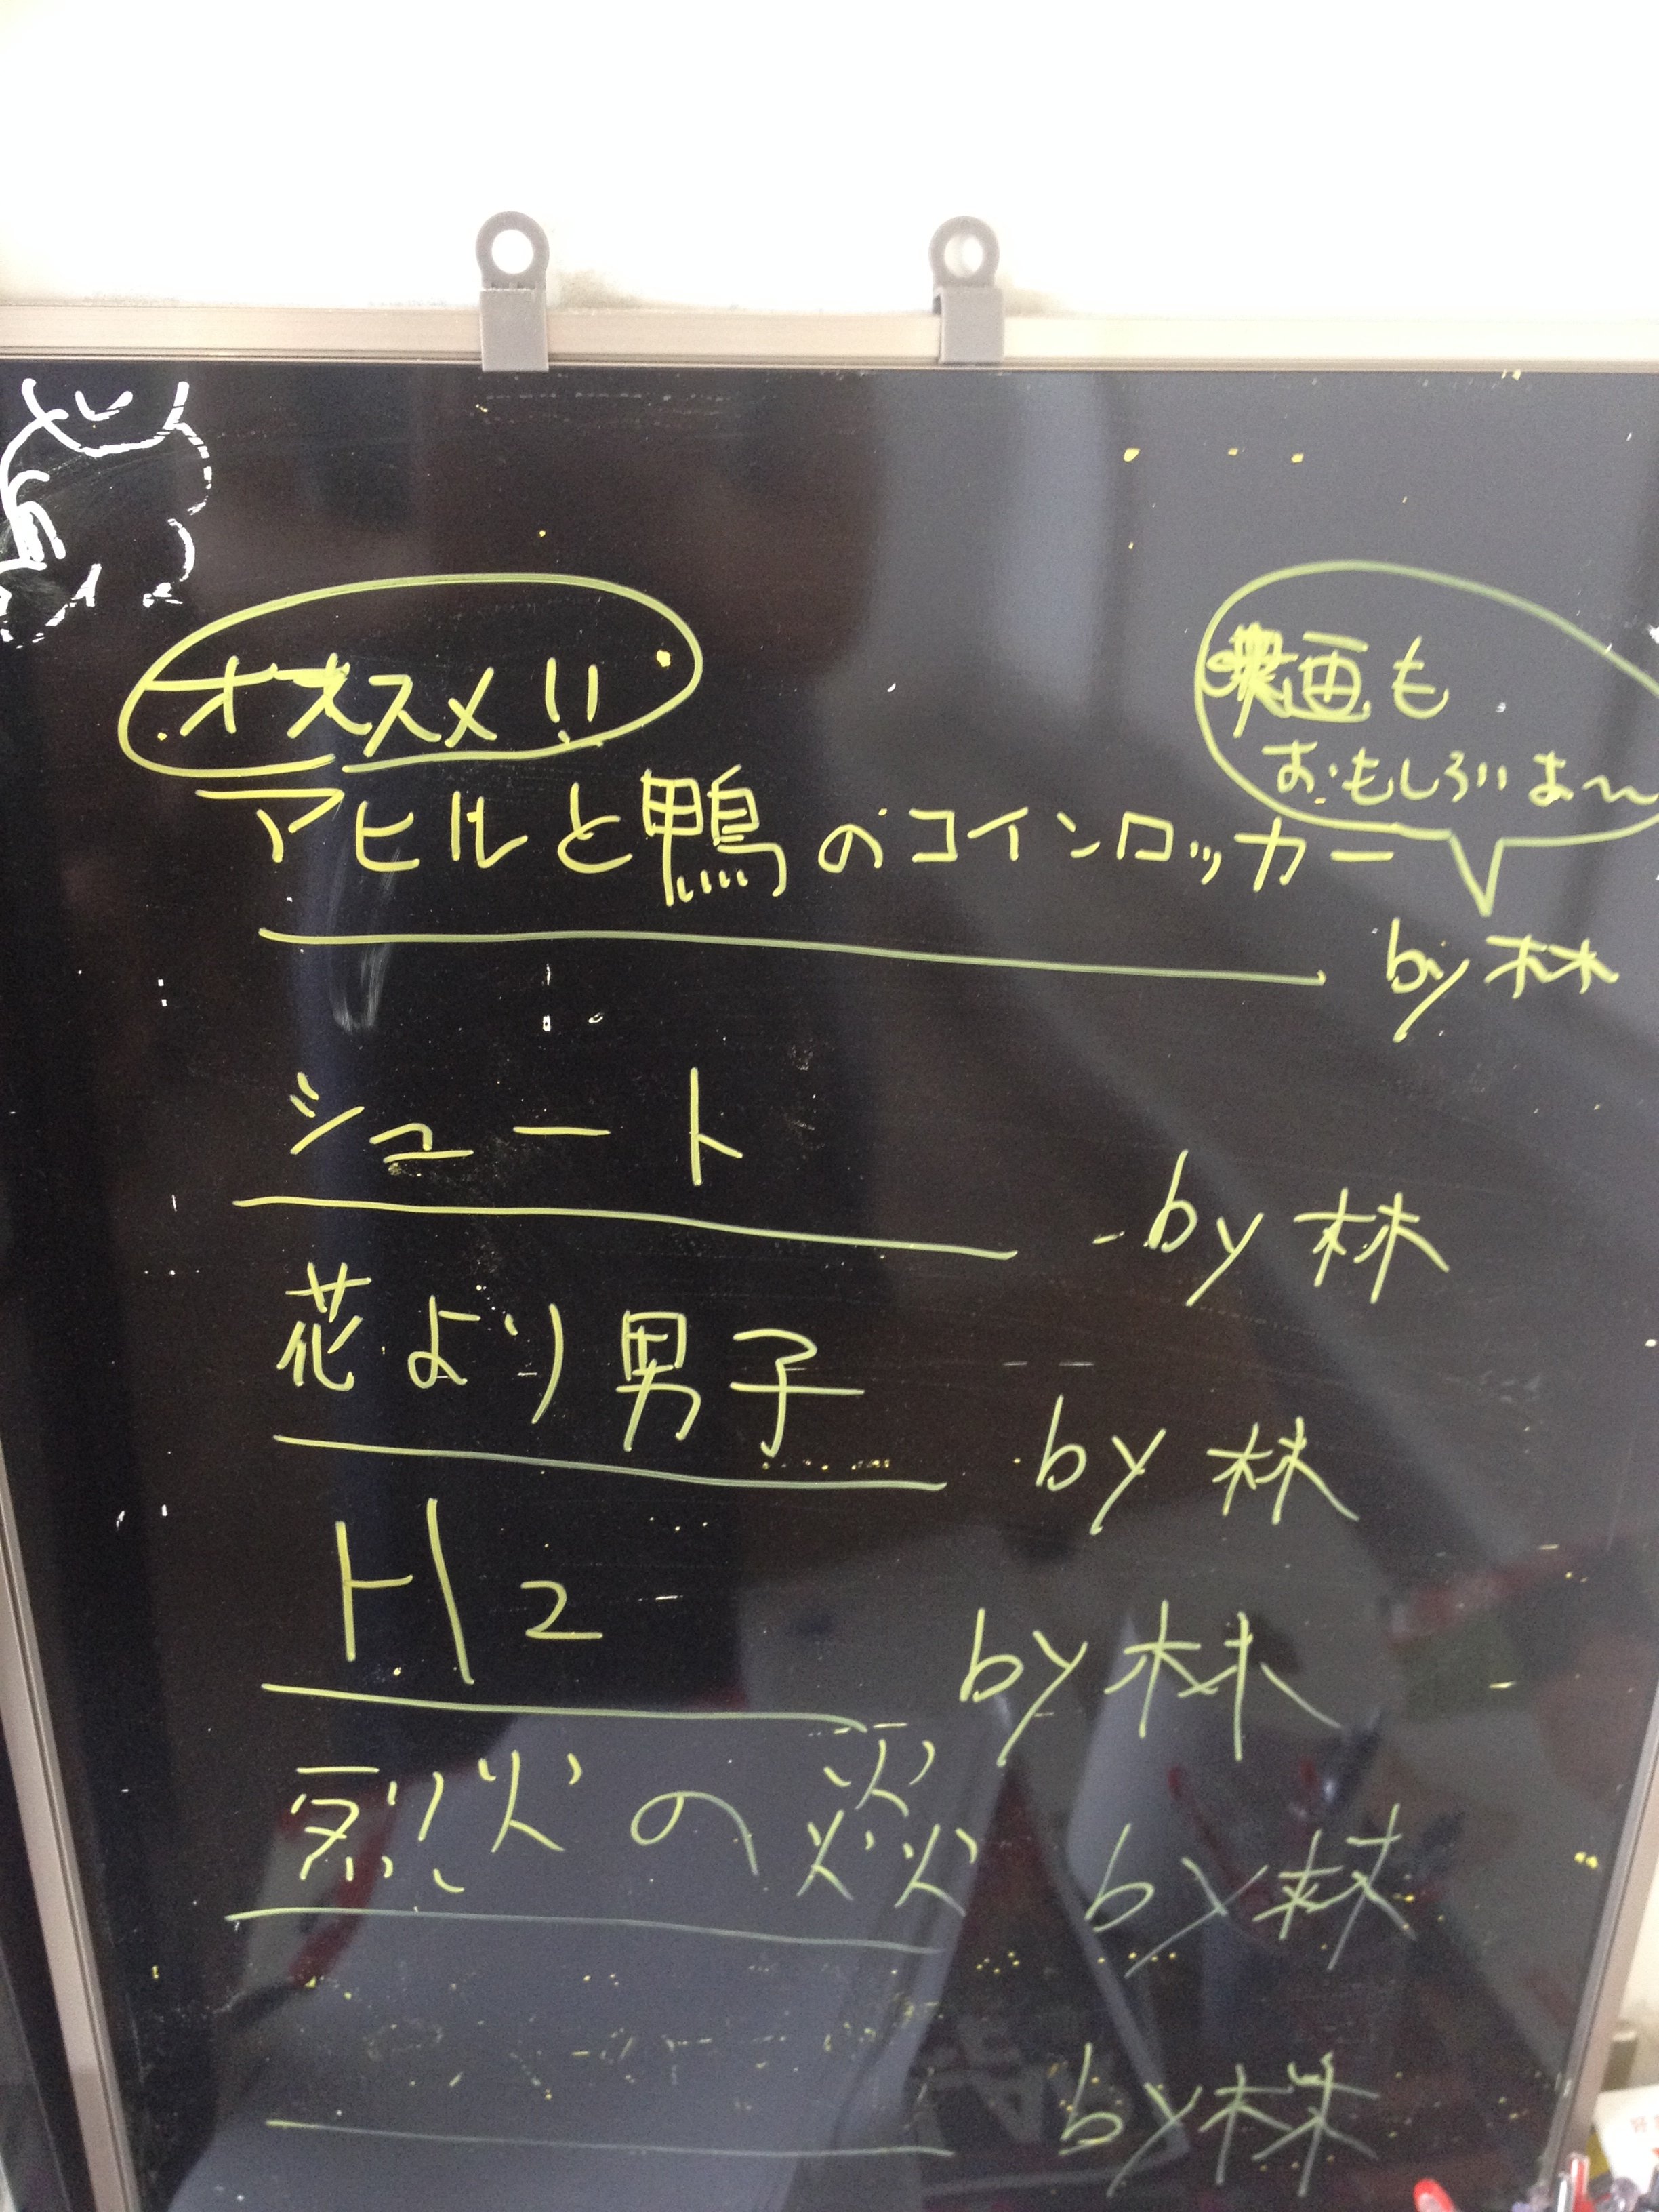 オススメ!!
映画も
おもしろいよ〜
アヒルと鴨のコインロッカー
by 林
シュート
by 林
花より男子
by 林
H2
by 林
烈火の炎
by 林
by 林